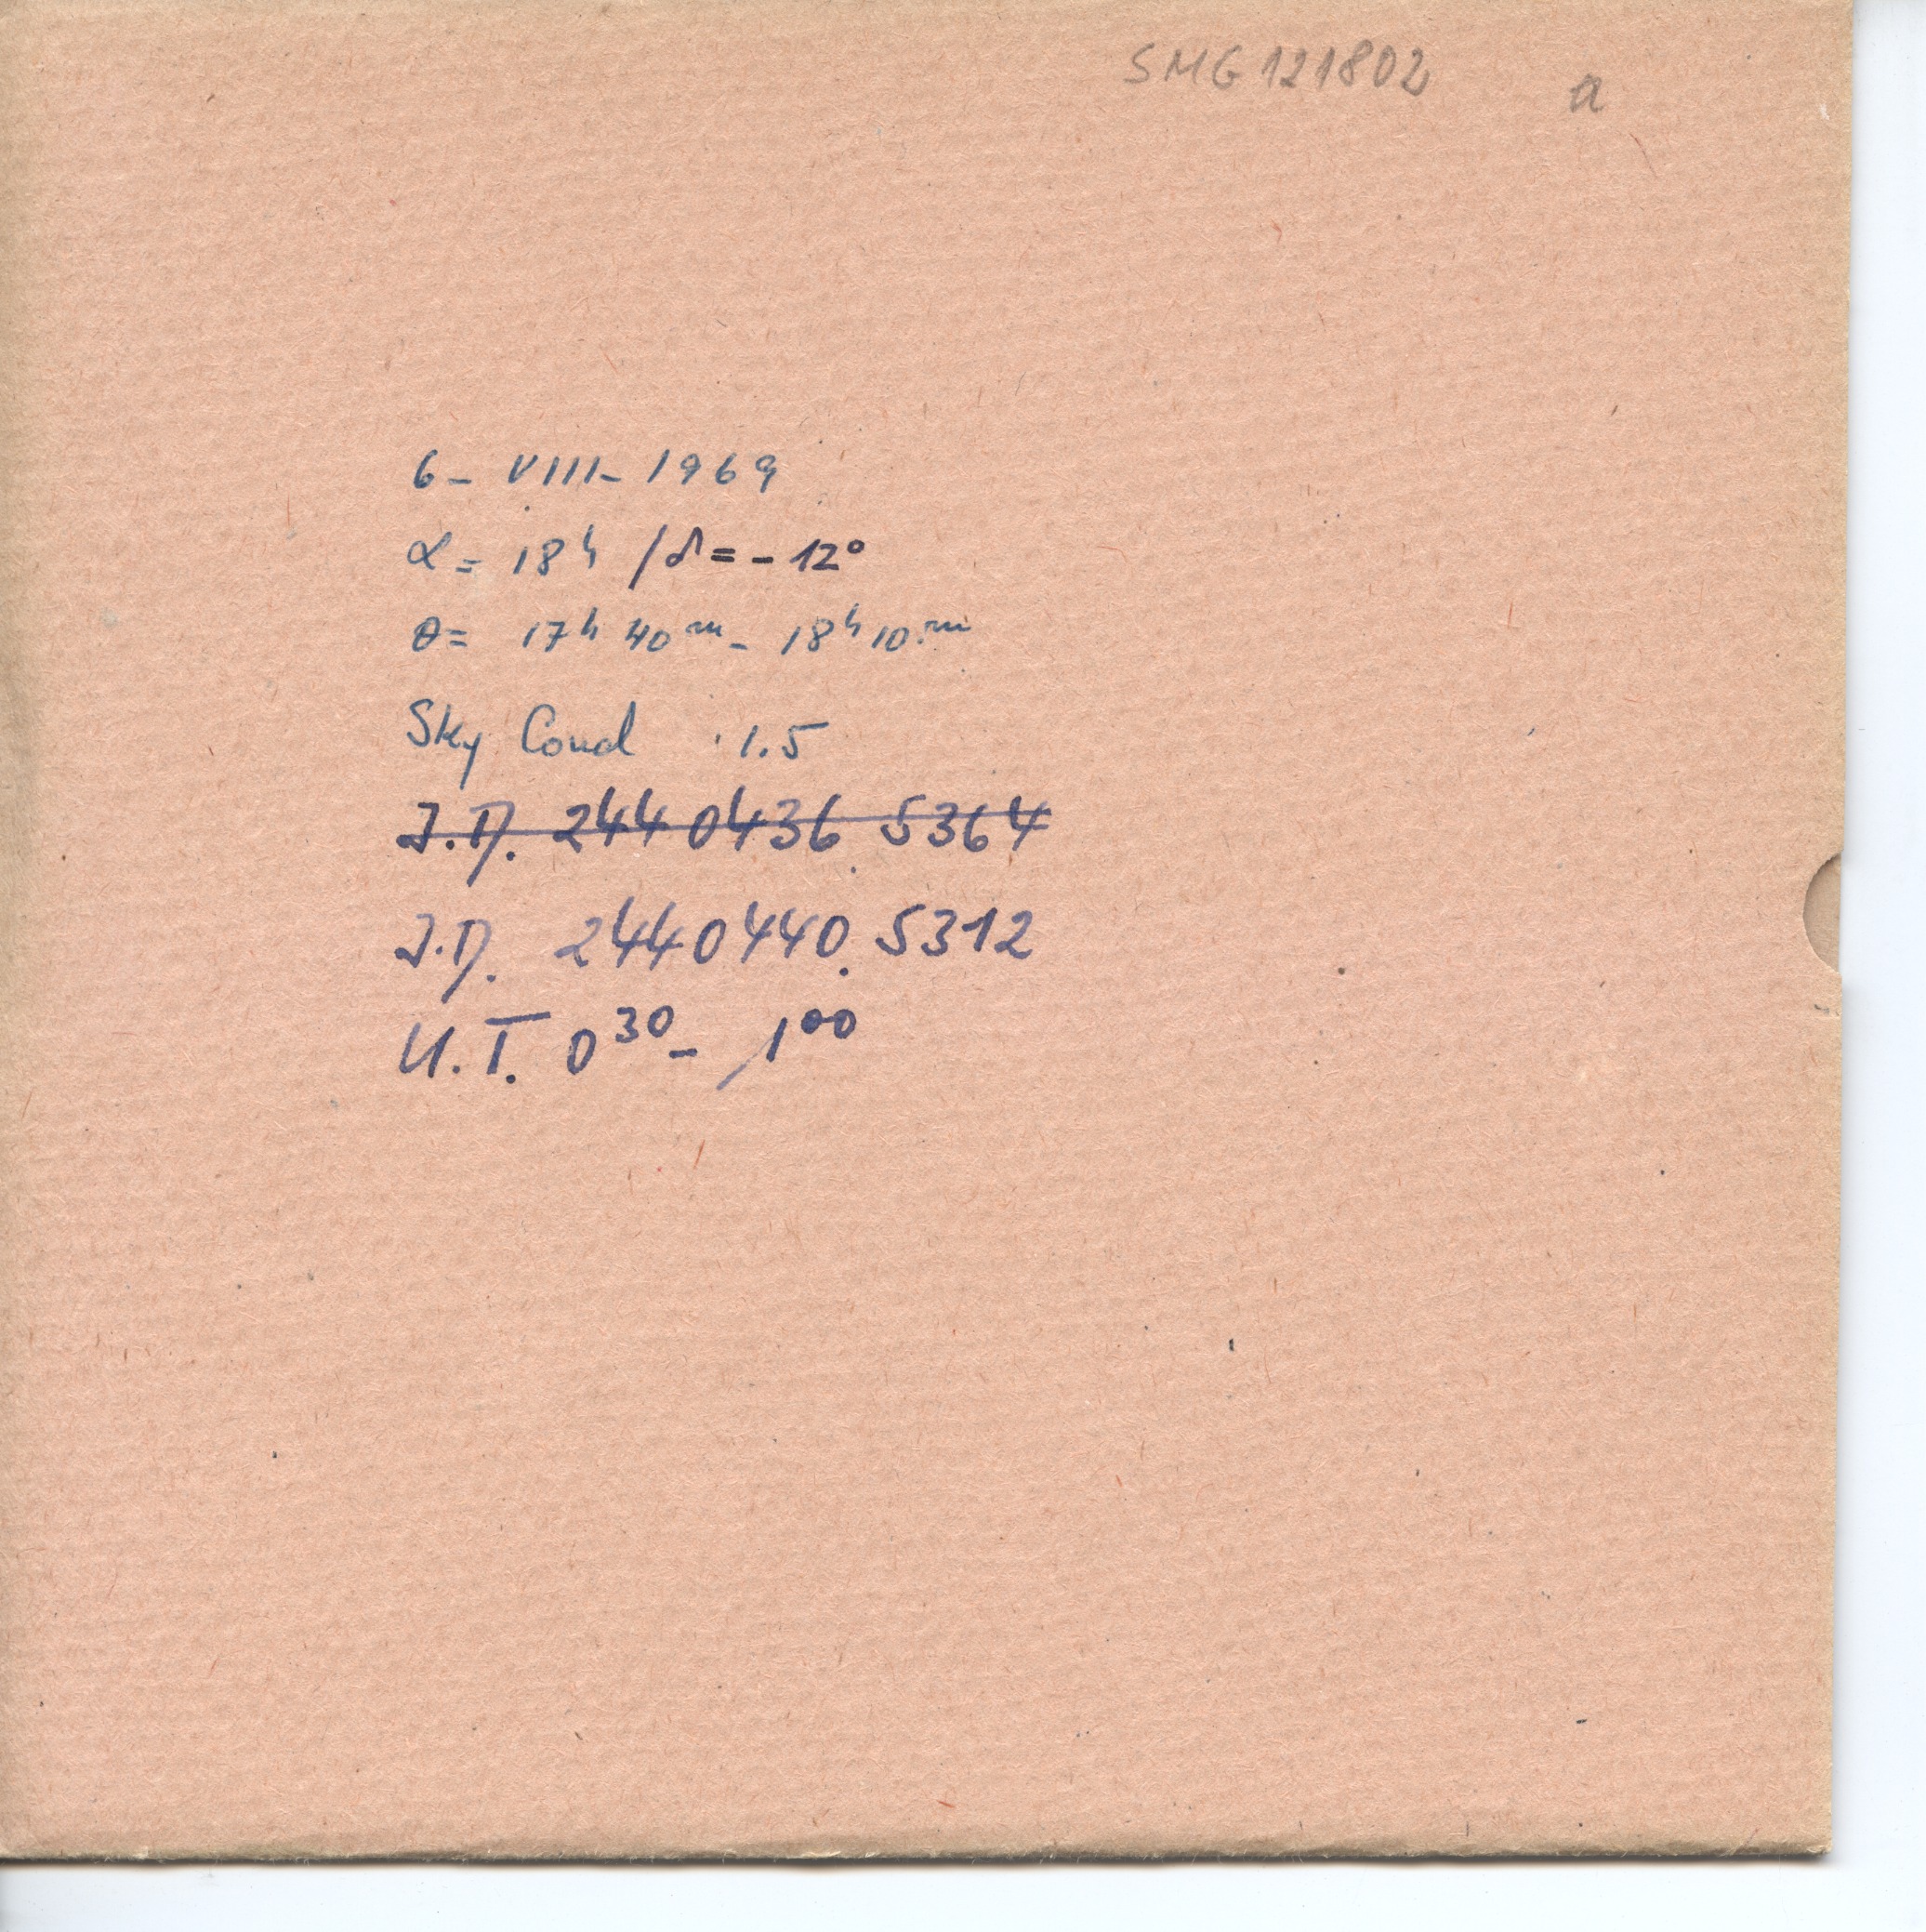 SMG 121802 a
6- VIII- 1969
α = 18ʰ /δ = - 12°
θ = 17ʰ 40ᵐ - 18ʰ 10ᵐ
Sky Cond 1.5
J.D. 2440436.5364
J.D. 2440440.5312
U.T. 0³⁰ - 1⁰⁰